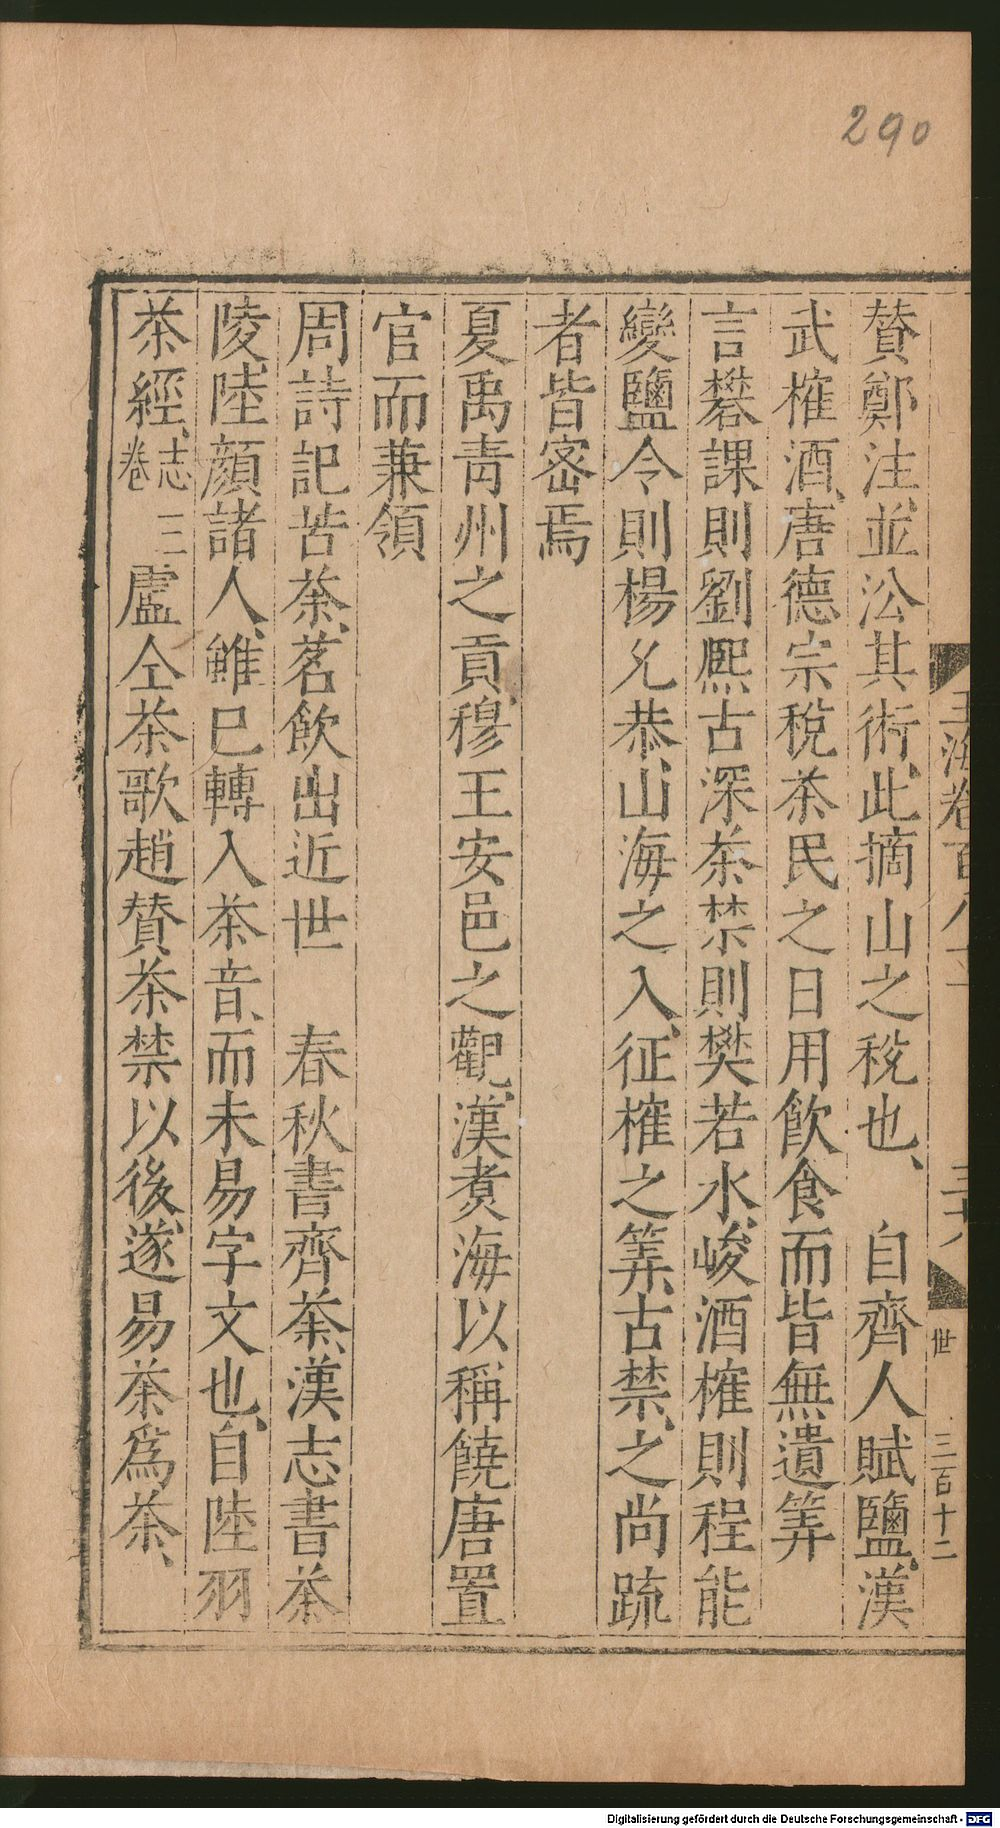 290
玉海卷百八十一
三十八
世
三百十二
贊鄭注、並訟其術、此摘山之稅也、 自齊人賦鹽、漢
武榷酒、唐德宗稅茶民之日用飲食而皆無遺筭
言礬課則劉熙古深茶禁則樊若水、峻酒榷則程能
變鹽令則楊允恭、山海之入、征榷之筭、古禁、之尚疏
者皆密焉
夏禹青州之貢、穆王安邑之觀、漢煑海以稱饒唐置
官而兼領
周詩記苦荼、茗飲出近世 春秋書齊荼、漢志書荼
陵、陸顏諸人、雖已轉入茶音、而未易字文也、自陸羽
茶經、志三卷盧仝茶歌趙贊茶禁以後、遂易荼爲茶、
Digitalisierung gefördert durch die Deutsche Forschungsgemeinschaft - DFG